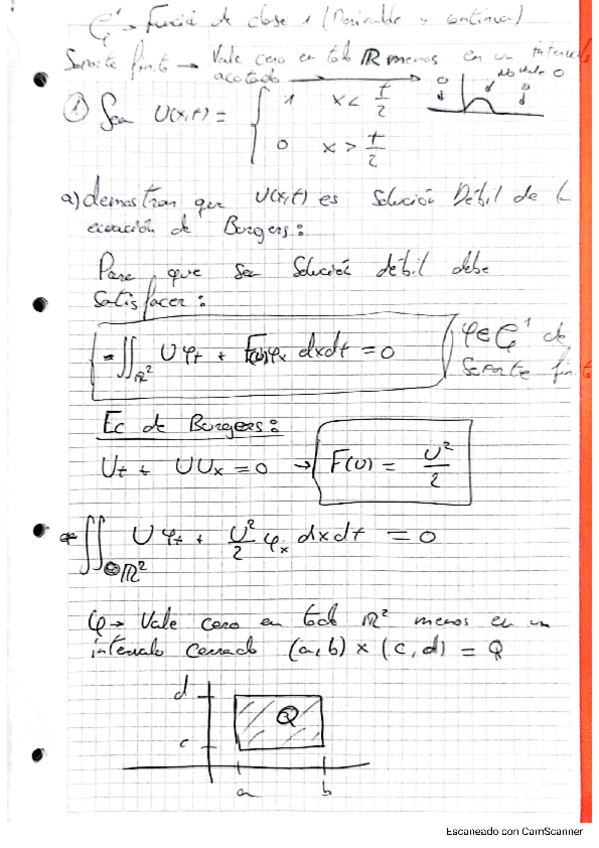 C¹ → Función de clase 1 (Derivable y continua)
Soporte finito → Vale cero en todo ℝ menos en un intervalo
acotado
0 No vale 0 0
① Sea U(x,t) = { 1 x < t/2
0 x > t/2
a) demostrar que U(x,t) es solución Débil de l
ecuación de Burgers:
Para que sea solución débil debe
satisfacer:
-∬_ℝ² U φt + F(U)φx dxdt = 0
φ ∈ C¹ de
soporte finito
Ec de Burgers:
Ut + UUx = 0 → F(U) = U²/2
∬_ℝ² U φt + U²/2 φx dxdt = 0
φ → Vale cero en todo ℝ² menos en un
intervalo cerrado (a,b) × (c,d) = Q
d
Q
c
a b
Escaneado con CamScanner